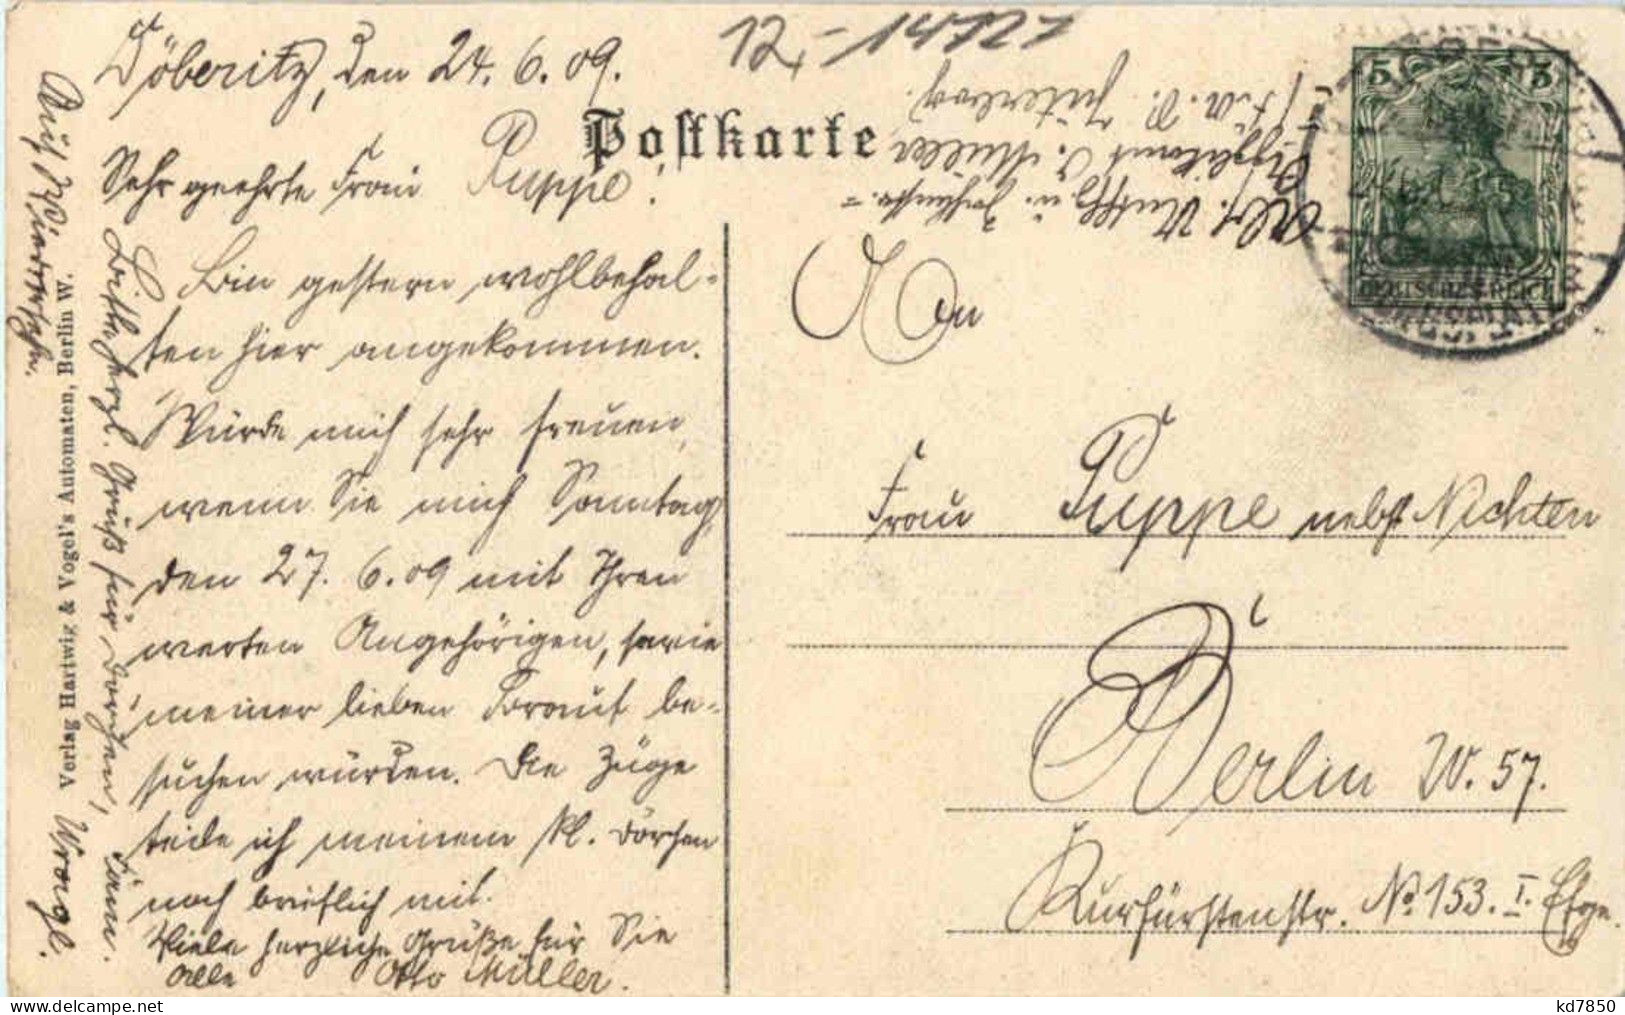 Döberitz, den 24. 6. 09.
Sehr geehrte Frau Puppe!
Bin gestern wohlbehal-
ten hier angekommen.
Würde mich sehr freuen,
wenn Sie mich Sonntag,
den 27. 6. 09 mit Ihren
werten Angehörigen, sowie
meiner lieben Braut be-
suchen würden. Die Züge
teile ich meinem kl. Dörchen
noch brieflich mit.
Viele herzliche Grüße für Sie
alle Otto Müller.
Bitte herzl. Gruß für Dörchen,
Auf Wiedersehn.
Verlag Hartwig & Vogel's Automaten, Berlin W.
12 - 14727
Postkarte
Müller
Jüterbog.
An
Frau Puppe nebst Nichten
Berlin W. 57.
Kurfürstenstr. No 153. I. Etge.
5 5
DEUTSCHES REICH
kd7850